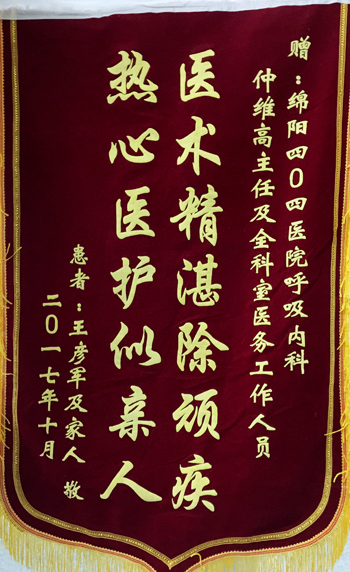 赠：绵阳四0四医院呼吸内科
仲维高主任及全科室医务工作人员
医术精湛除顽疾
热心医护似亲人
患者：王彦军及家人 敬
二0一七年十月